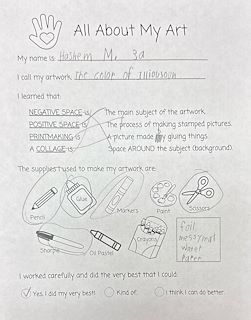 All About My Art
My name is: Hashem M. 3a
I call my artwork The color of
I learned that:
NEGATIVE SPACE is The main subject of the artwork.
POSITIVE SPACE is The process of making stamped pictures.
PRINTMAKING is A picture made by gluing things.
A COLLAGE is Space AROUND the subject (background).
The supplies I used to make my artwork are:
Pencil
Glue
Markers
Paint
Scissors
Sharpie
Oil Pastel
Crayons
foil
Paper
I worked carefully and did the very best that I could:
Yes, I did my very best! Kind of. I think I can do better.